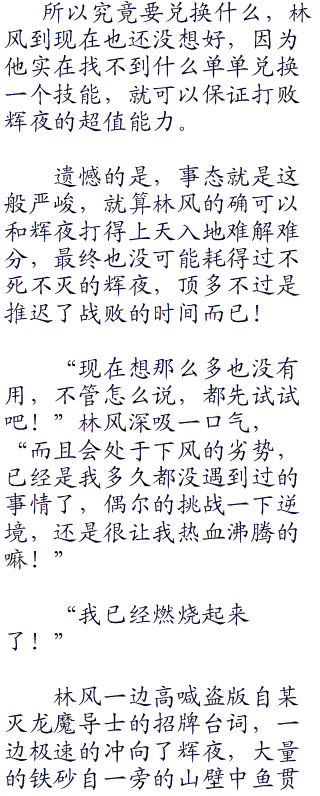 所以究竟要兑换什么，林
风到现在也还没想好，因为
他实在找不到什么单单兑换
一个技能，就可以保证打败
辉夜的超值能力。
遗憾的是，事态就是这
般严峻，就算林风的确可以
和辉夜打得上天入地难解难
分，最终也没可能耗得过不
死不灭的辉夜，顶多不过是
推迟了战败的时间而已！
“现在想那么多也没有
用，不管怎么说，都先试试
吧！”林风深吸一口气，
“而且会处于下风的劣势，
已经是我多久都没遇到过的
事情了，偶尔的挑战一下逆
境，还是很让我热血沸腾的
嘛！”
“我已经燃烧起来
了！”
林风一边高喊盗版自某
灭龙魔导士的招牌台词，一
边极速的冲向了辉夜，大量
的铁砂自一旁的山壁中鱼贯